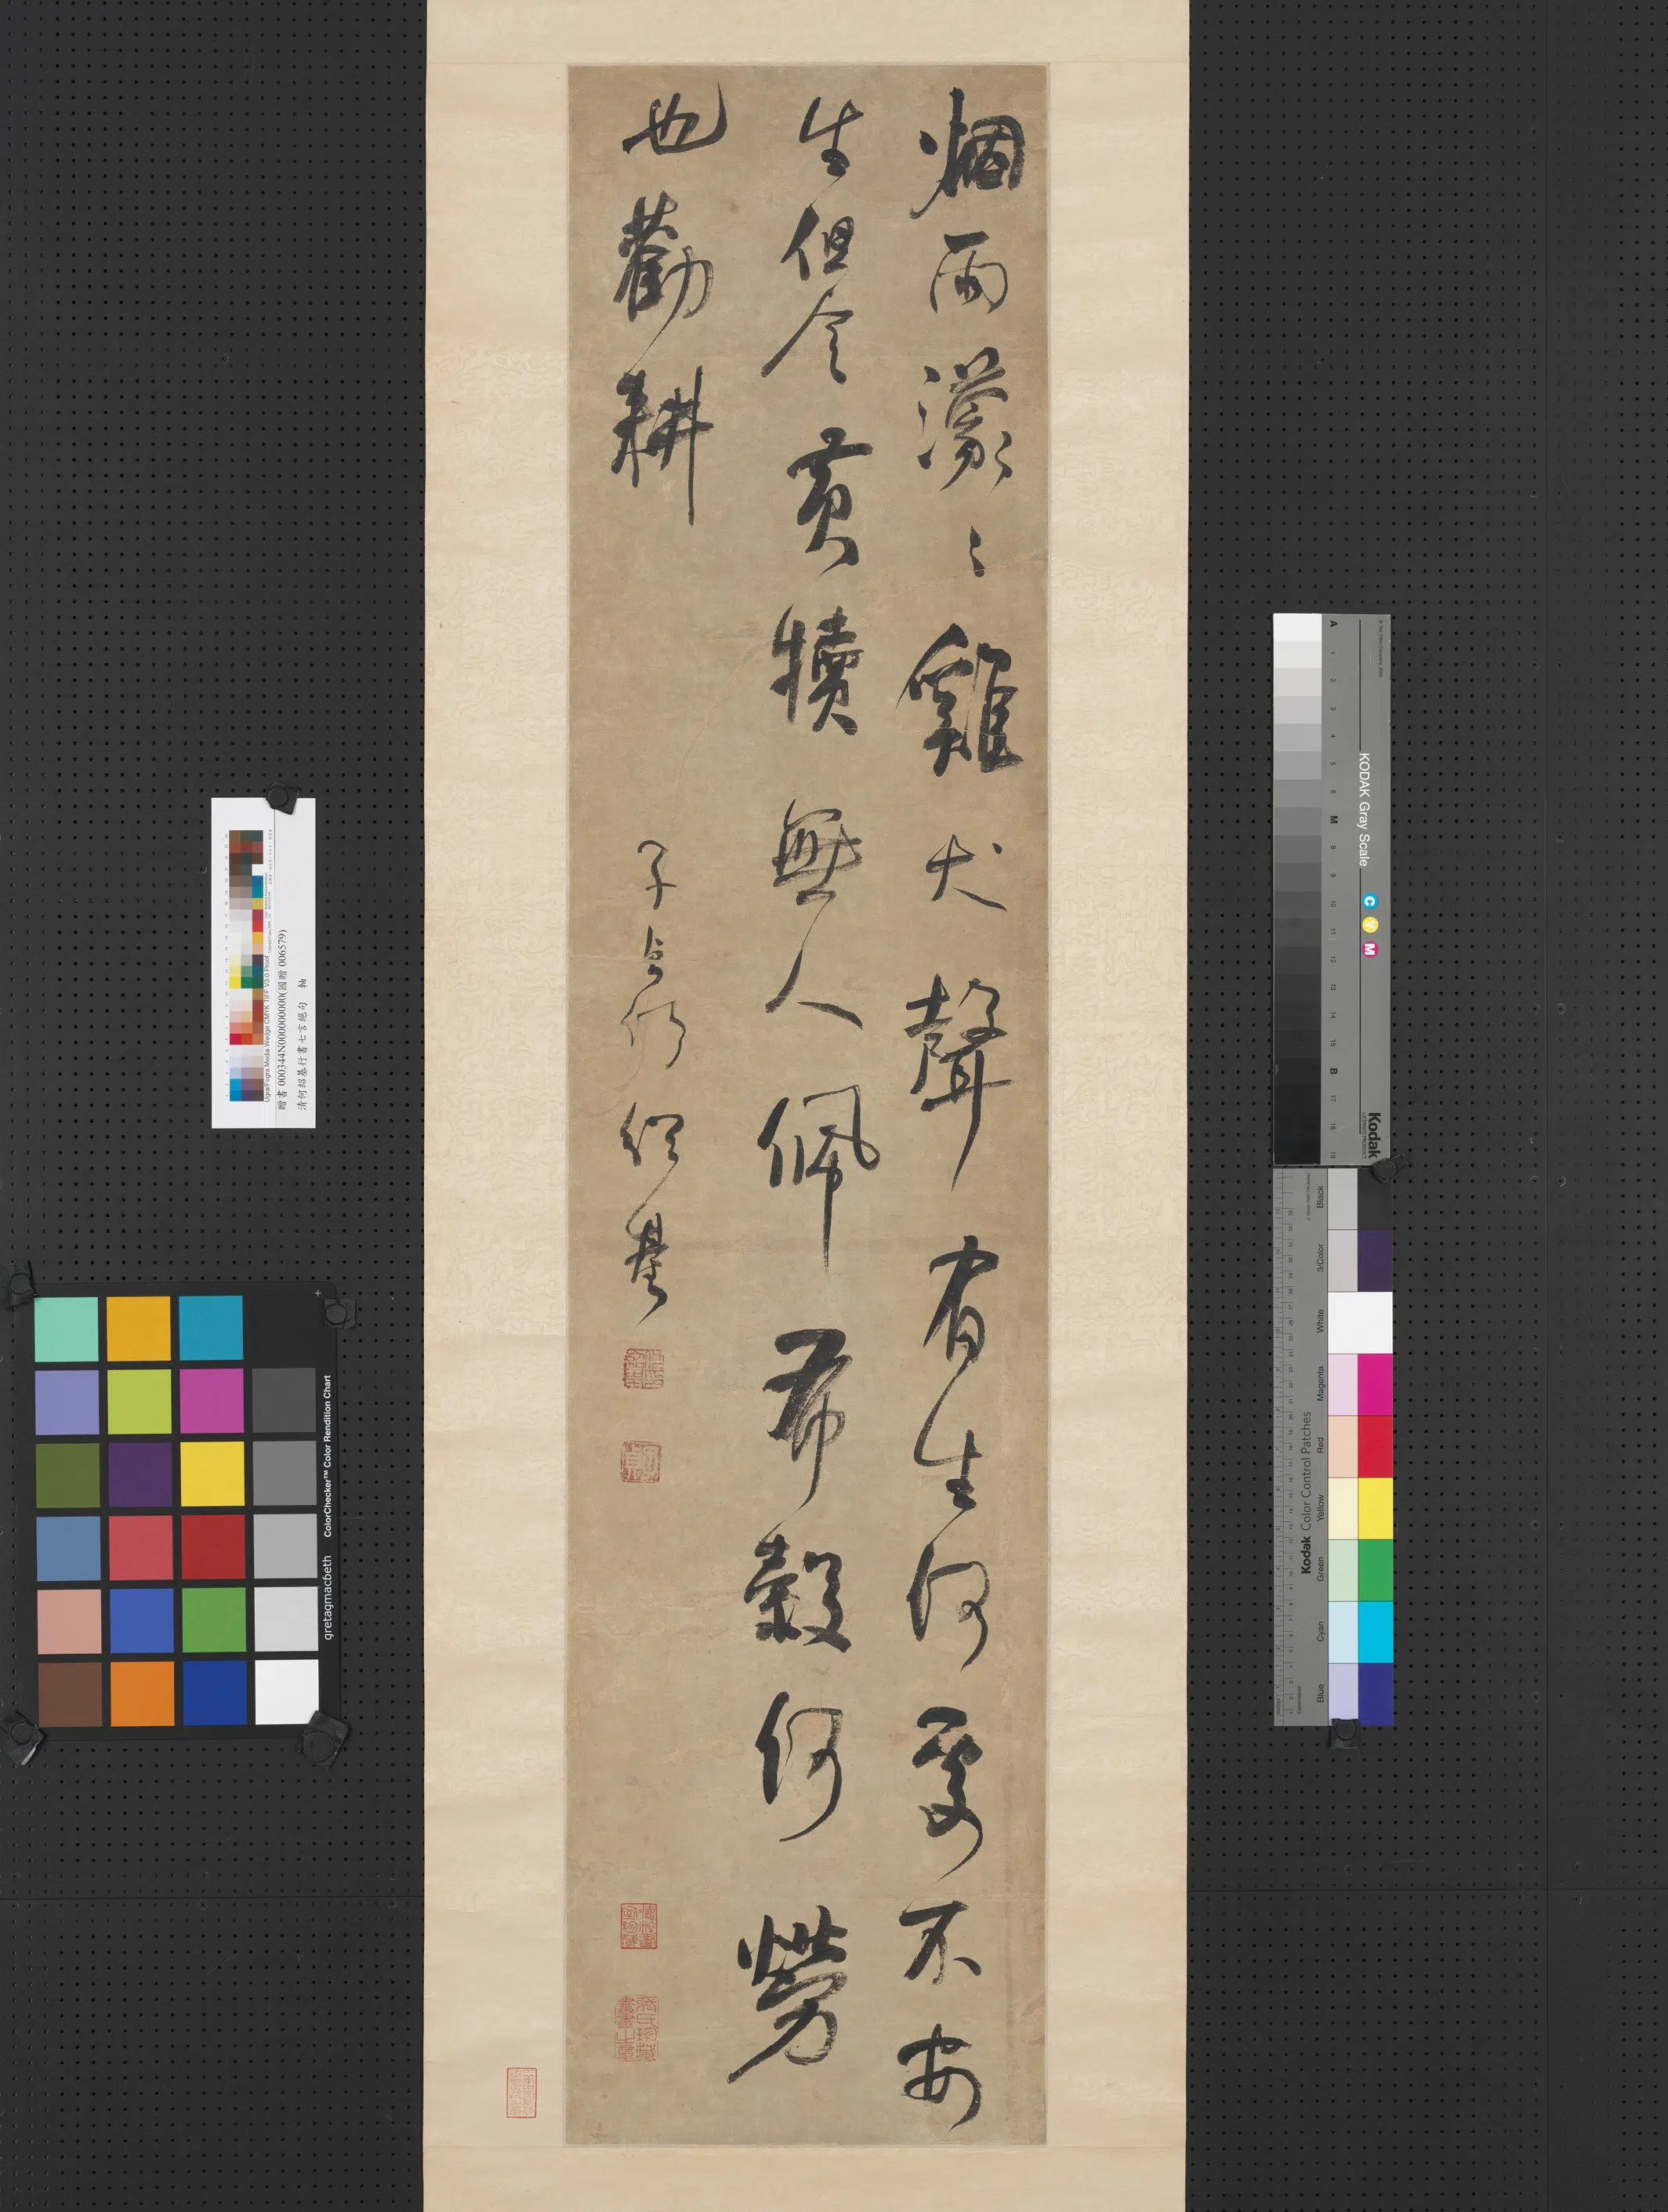 烟雨濛〻雞犬聲有生何處不安
生但令黃犢無人佩布穀何勞
也勸耕
子貞何紹基
贈書 000344N000000000(國贈 006579)
清何紹基行書七言絕句 軸
Ugra/Fogra Media Wedge CMYK TIFF V3.0 Proof
gretagmacbeth
ColorChecker™ Color Rendition Chart
KODAK Gray Scale
C Y M
Kodak
LICENSED PRODUCT
A 1 2 3 4 5 6 M 8 9 10 11 12 13 14 15 B 17 18 19
Kodak Color Control Patches
Blue Cyan Green Yellow Red Magenta White 3/Color Black
Centimetres